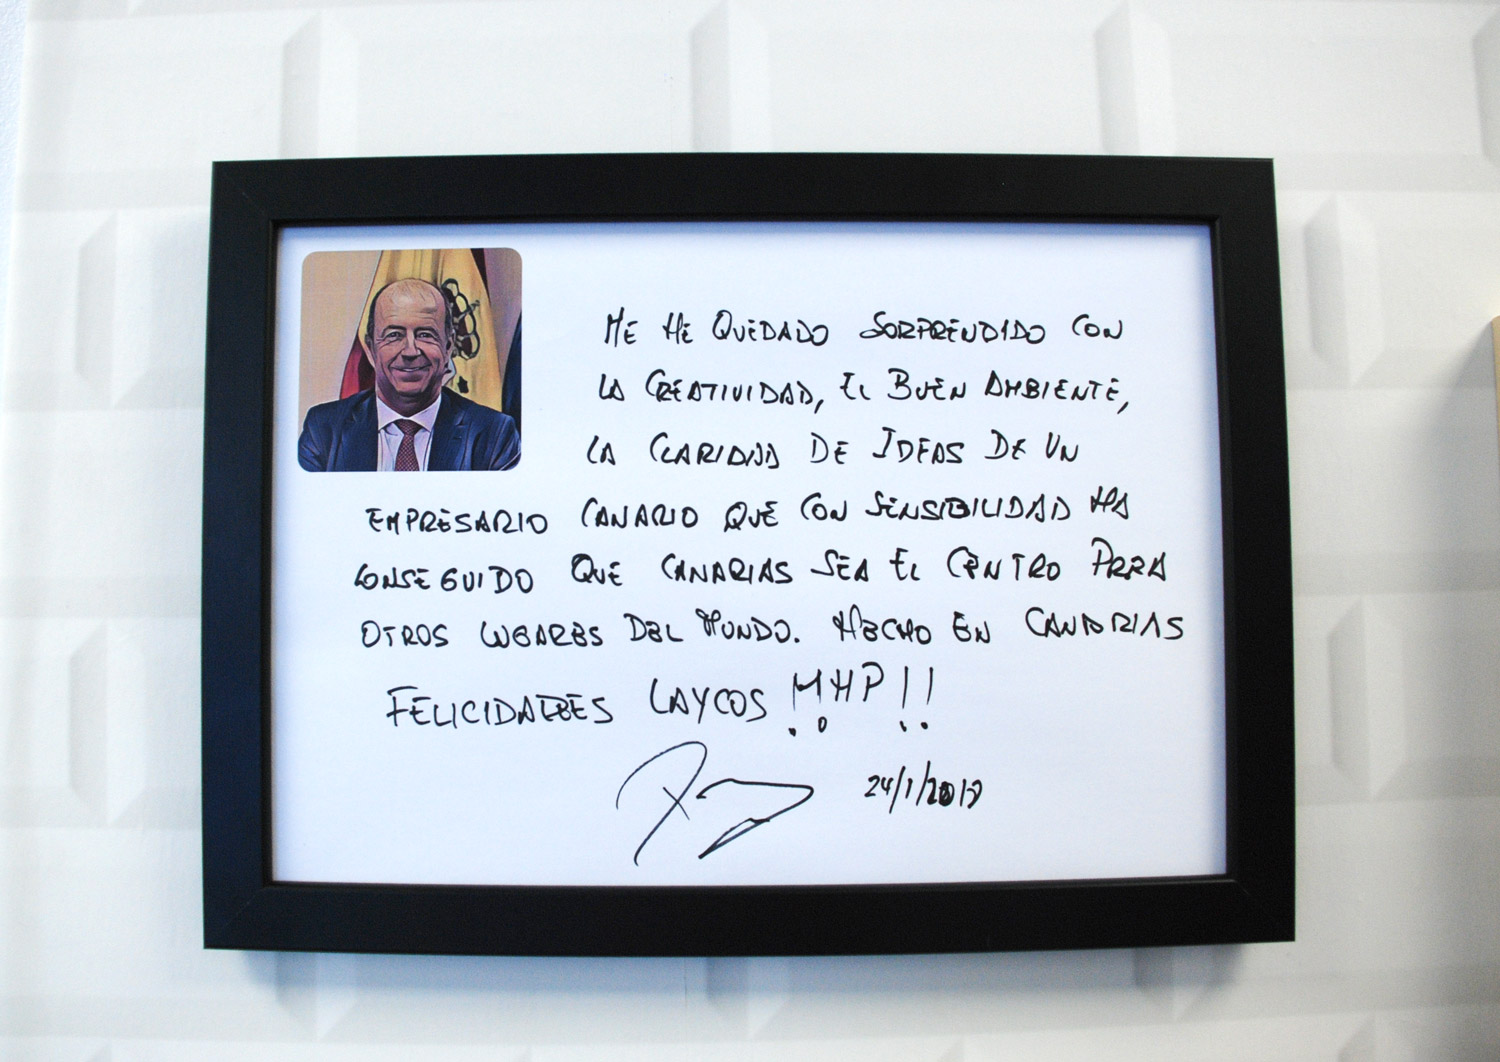 ME HE QUEDADO SORPRENDIDO CON
LA CREATIVIDAD, EL BUEN AMBIENTE,
LA CLARIDAD DE IDEAS DE UN
EMPRESARIO CANARIO QUE CON SENSIBILIDAD HA
CONSEGUIDO QUE CANARIAS SEA EL CENTRO PARA
OTROS LUGARES DEL MUNDO. HECHO EN CANARIAS
FELICIDADES LAYCOS MHP!!